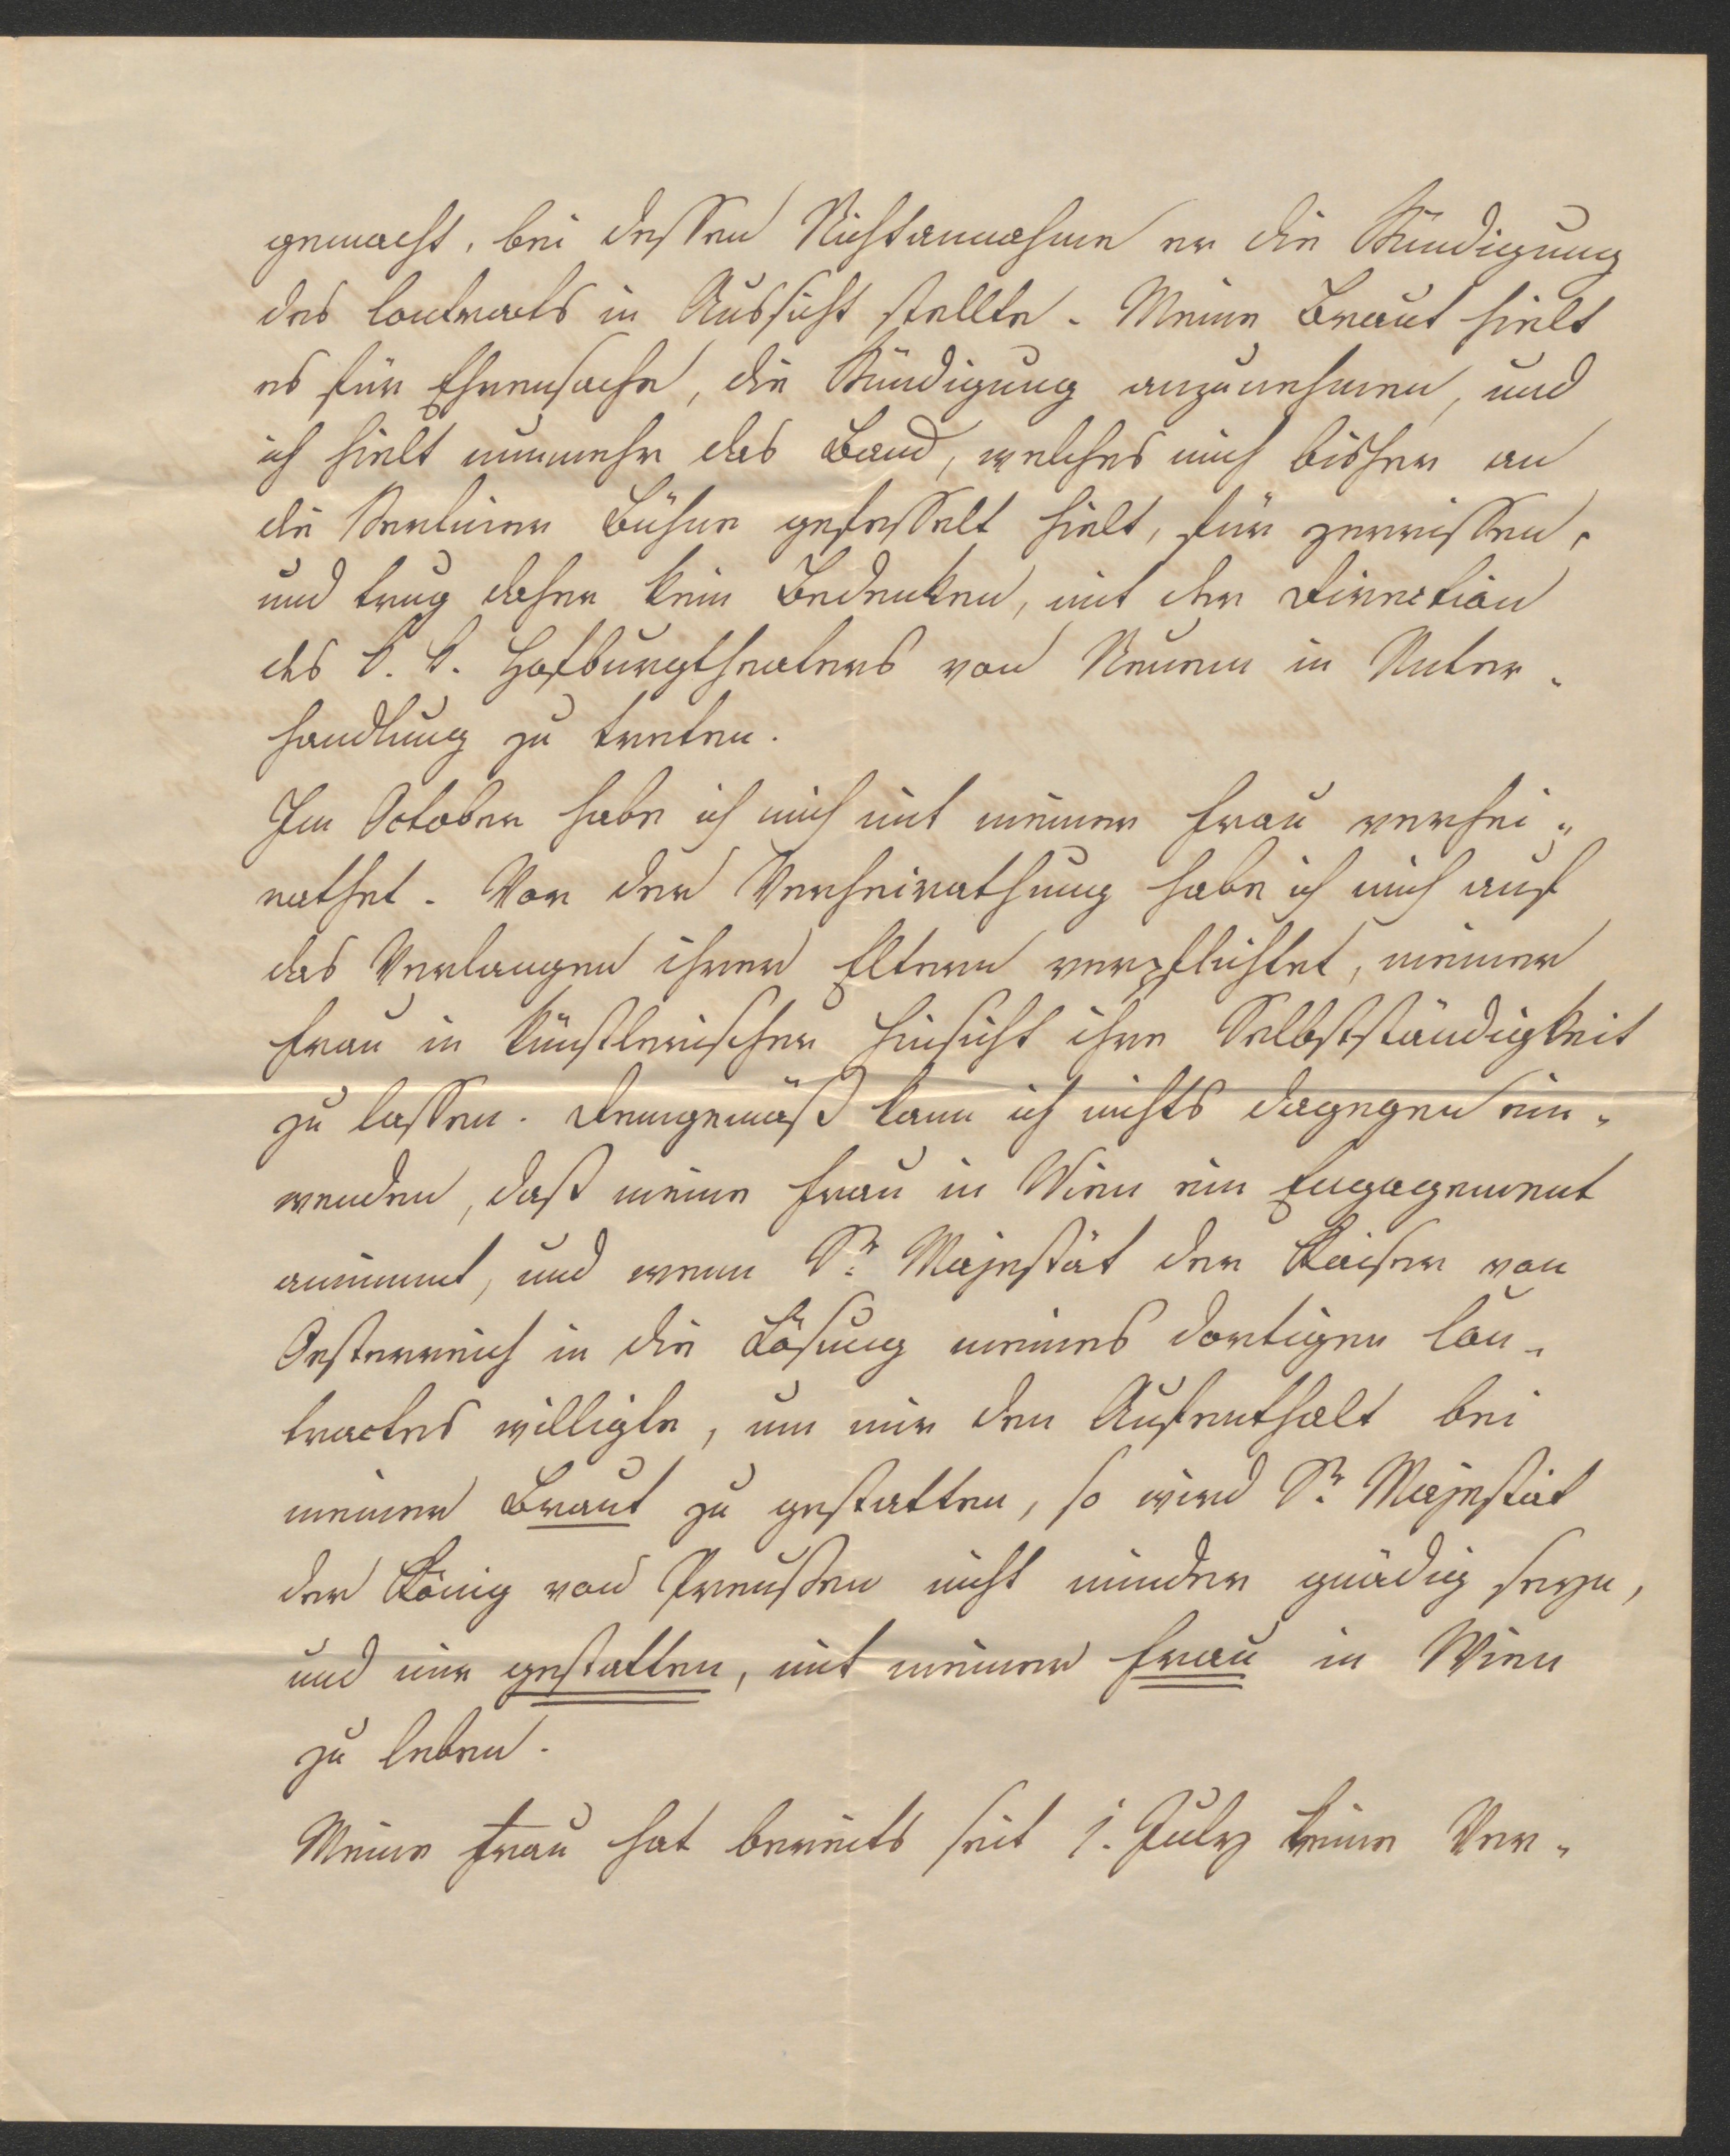 gemacht, bei dessen Nichtannahme er die Kündigung
des Contracts in Aussicht stellte. Meine Braut hielt
es für Ehrensache, die Kündigung anzunehmen, und
ich hielt nunmehr das Band, welches mich bisher an
die Berliner Bühne gefesselt hielt, für zerrissen,
und trug daher kein Bedenken, mit der Direction
des k. k. Hofburgtheaters von Neuem in Unter-
handlung zu treten.
Im October habe ich mich mit meiner Frau verhei-
rathet. Vor der Verheirathung habe ich mich auf
das Verlangen ihrer Eltern verpflichtet, meiner
Frau in künstlerischer Hinsicht ihre Selbstständigkeit
zu lassen. Demgemäß kann ich nichts dagegen ein-
wenden, daß meine Frau in Wien ein Engagement
annimmt, und wenn Sr. Majestät der Kaiser von
Oesterreich in die Lösung meines dortigen Con-
tractes willigte, um mir den Aufenthalt bei
meiner Braut zu gestatten, so wird Sr. Majestät
der König von Preußen nicht minder gnädig seyn,
und mir gestatten, mit meiner Frau in Wien
zu leben.
Meine Frau hat bereits seit 1. July keine Ver-